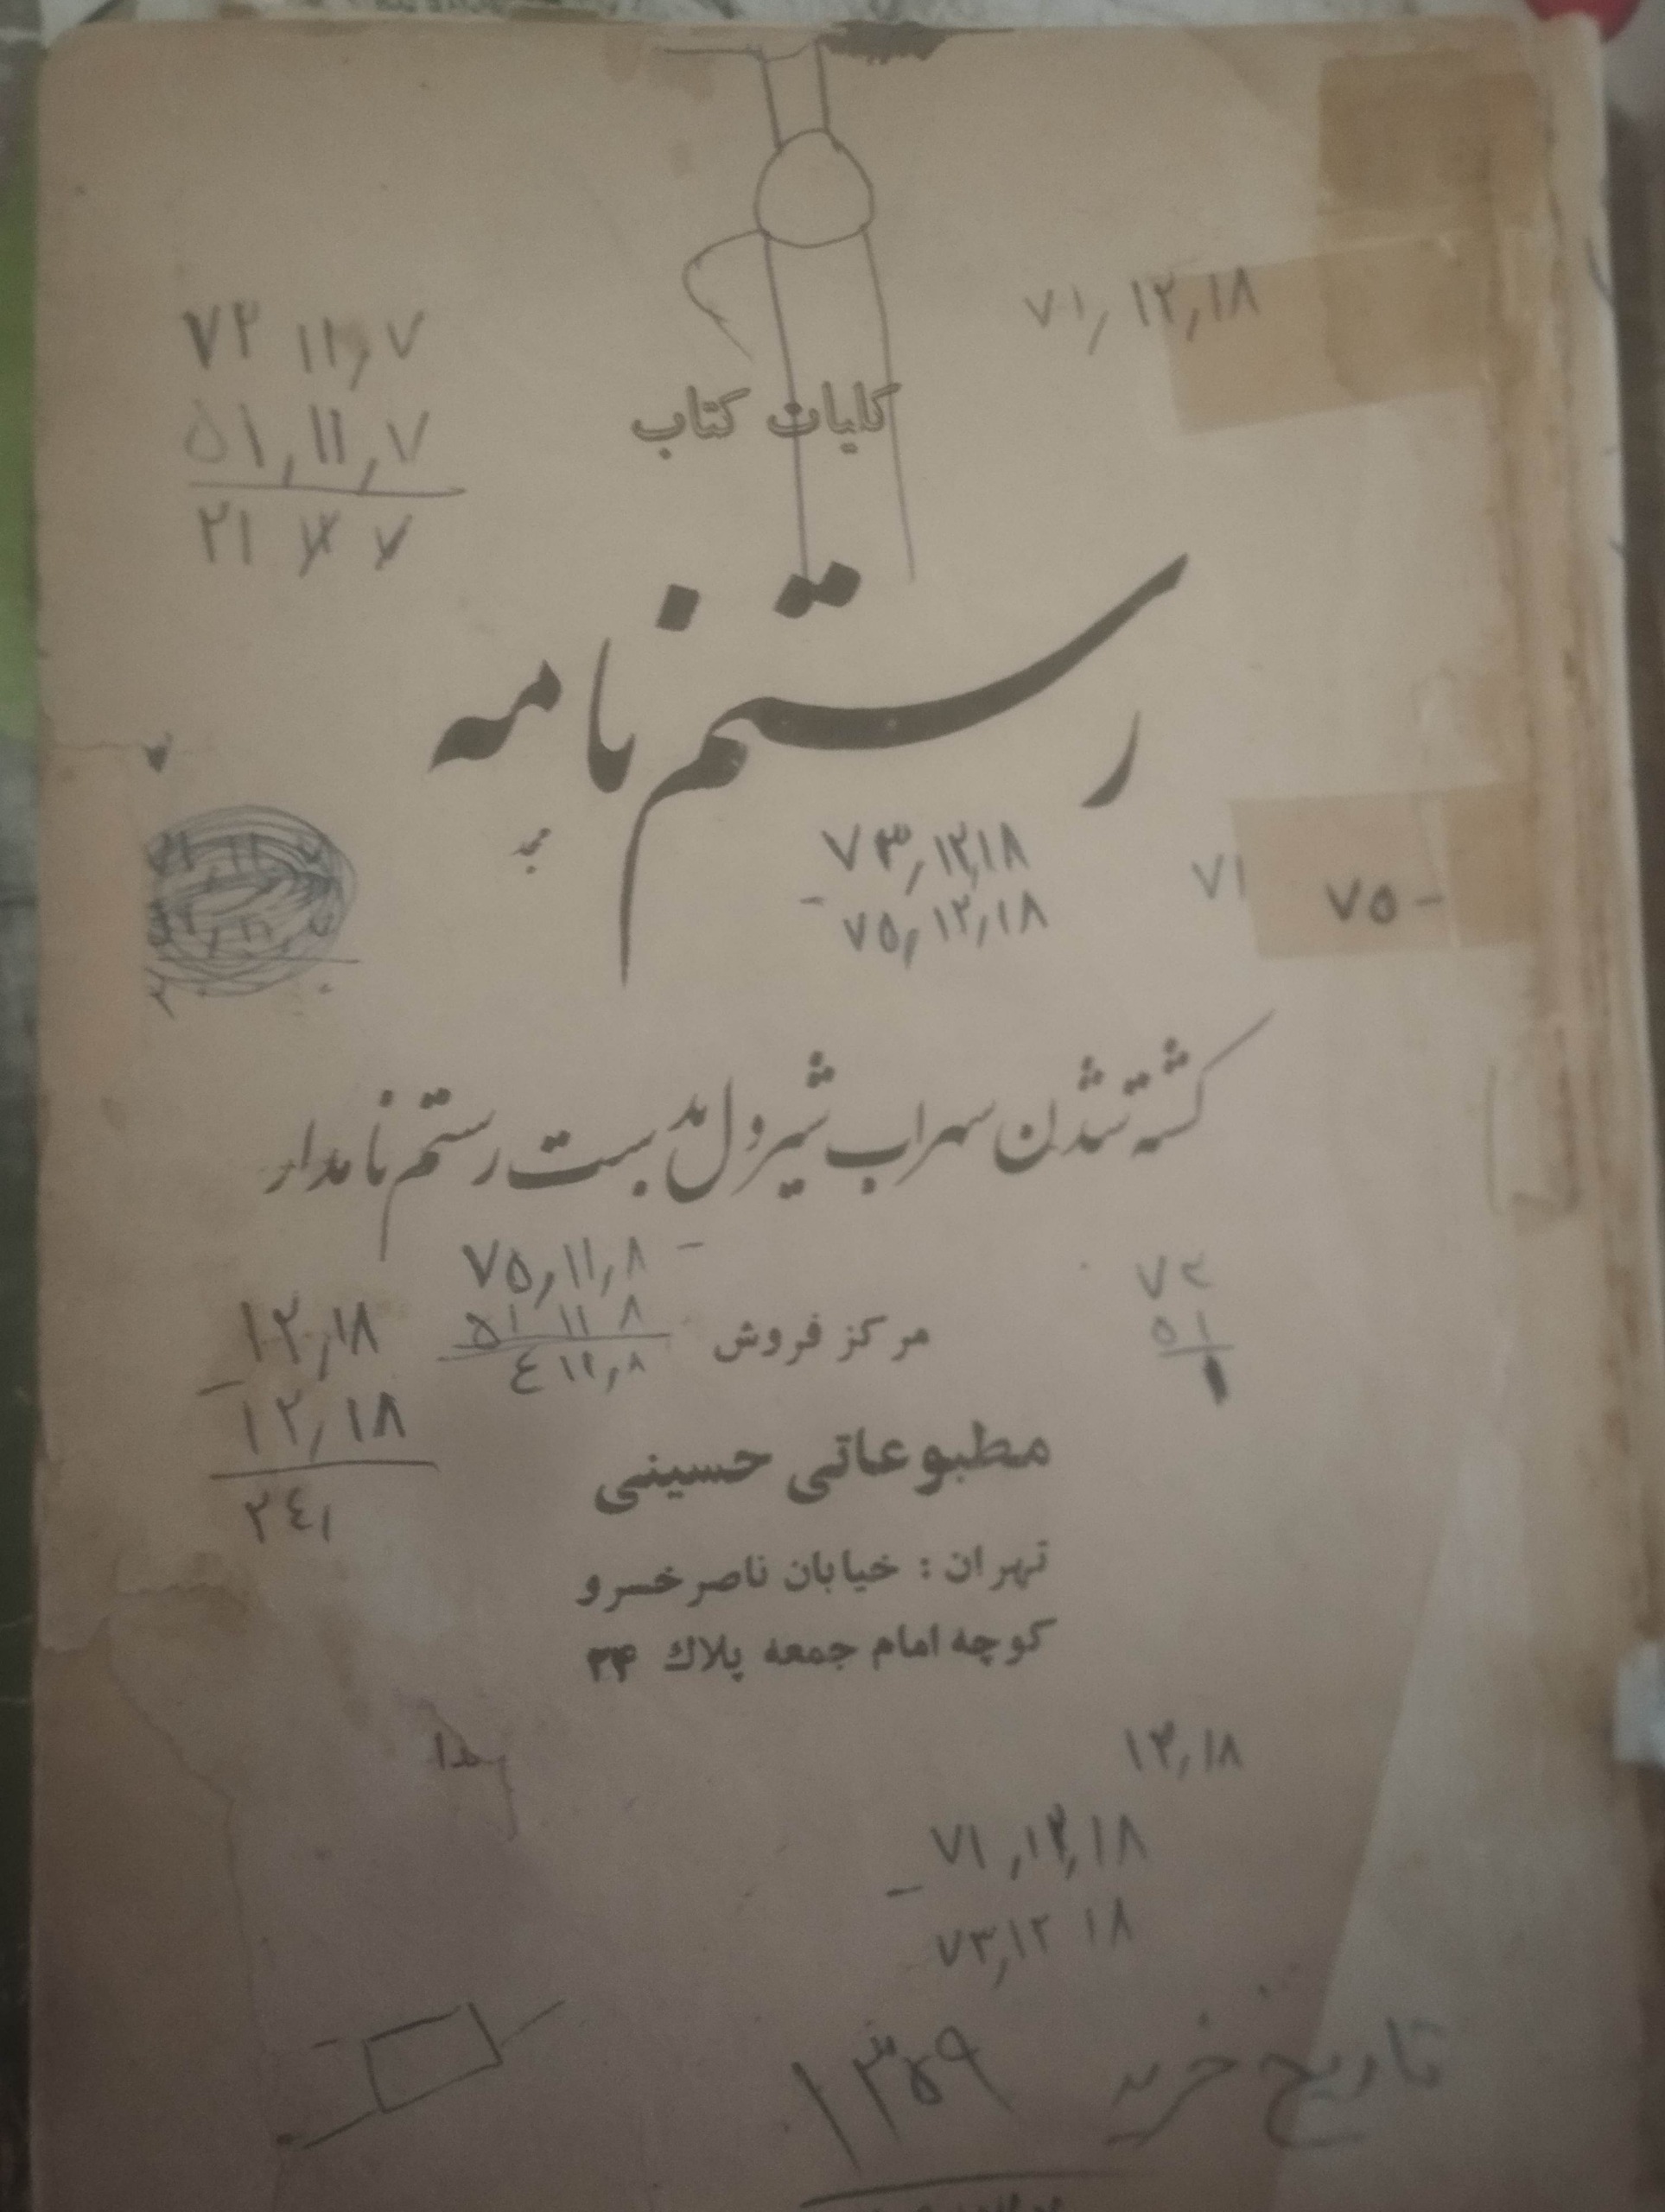 ۷۱٫۱۲٫۱۸
۷۲ ۱۱٫۷
۵۱٫۱۱٫۷
۲۱
کلیات کتاب
رستم نامه
۷۳٫۱۲٫۱۸
-
۷۵٫۱۲٫۱۸
۷۱
۷۵ -
کشته شدن سهراب شیردل بدست رستم نامدار
۷۵٫۱۱٫۸ -
۵۱ ۱۱ ۸
۱۲٫۱۸
-
۱۲٫۱۸
۲٤٫
۵۱
مرکز فروش
مطبوعاتی حسینی
تهران : خیابان ناصرخسرو
کوچه امام جمعه پلاك ۲۴
۱۲٫۱۸
۷۱٫۱۲٫۱۸
-
۷۳٫۱۲ ۱۸
تاریخ خرید ۱۳۵۹